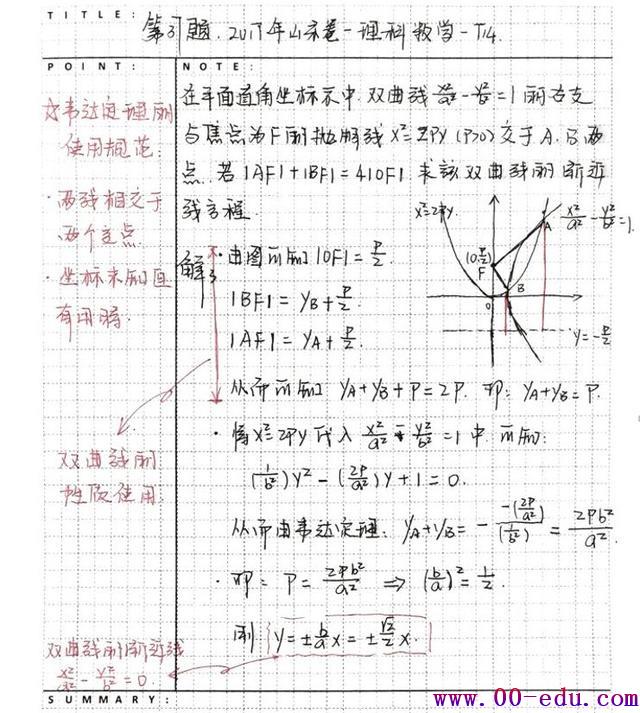 TITLE:
第37题. 2017年山东卷-理科数学-T14.
POINT:
NOTE:
☆韦达定理的
使用规范:
·两线相交于
两个交点.
·坐标未知且
有用时.
双曲线的
性质使用.
双曲线的渐近线
x²/a² - y²/b² = 0.
在平面直角坐标系中,双曲线 x²/a² - y²/b² = 1 的右支
与焦点为F的抛物线 x²=2Py (P>0) 交于A、B两
点. 若 |AF|+|BF|=4|OF| 求该双曲线的渐近
线方程.
x²=2Py.
x²/a² - y²/b² = 1.
A
(0,P/2)
F
B
O
y=-P/2
解:·由图可知 |OF| = P/2.
|BF| = y_B + P/2.
|AF| = y_A + P/2.
从而可知 y_A+y_B+P=2P. 即: y_A+y_B=P.
·将 x²=2Py 代入 x²/a² - y²/b² = 1 中. 可知:
(1/b²)y² - (2P/a²)y + 1 = 0.
从而由韦达定理: y_A+y_B = - -(2P/a²)/(1/b²) = 2Pb²/a².
·即: P = 2Pb²/a² ⇒ (b/a)² = 1/2.
则 y = ± b/a x = ± √2/2 x.
SUMMARY:
www.00-edu.com